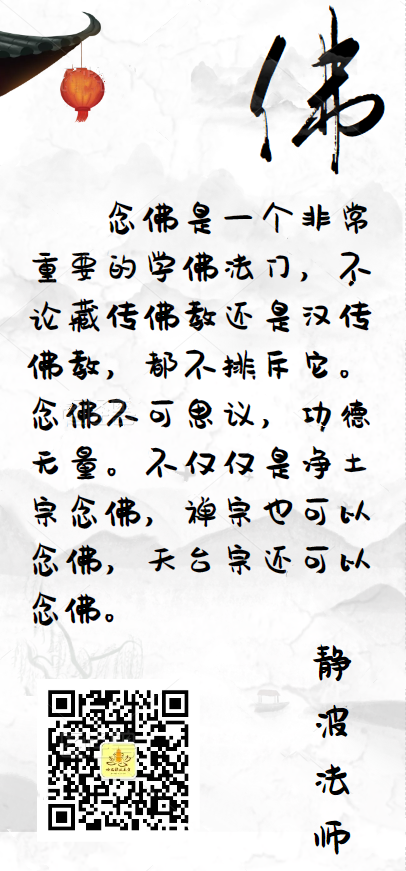 佛
念佛是一个非常
重要的学佛法门，不
论藏传佛教还是汉传
佛教，都不排斥它。
念佛不可思议，功德
无量。不仅仅是净土
宗念佛，禅宗也可以
念佛，天台宗还可以
念佛。
静波法师